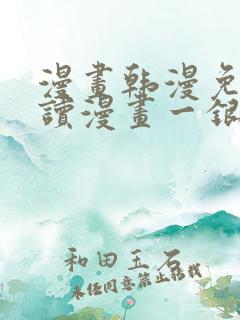 漫畫韩漫免
讀漫畫一銀
和田玉石
未经同意禁止转载